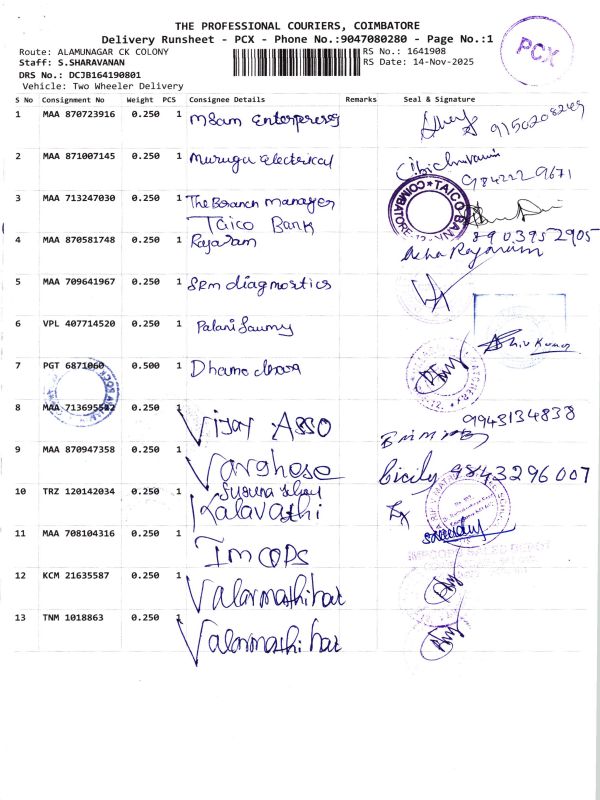 THE PROFESSIONAL COURIERS, COIMBATORE
Delivery Runsheet - PCX - Phone No.:9047080280 - Page No.:1
PCX
Route: ALAMUNAGAR CK COLONY
RS No.: 1641908
Staff: S.SHARAVANAN
RS Date: 14-Nov-2025
DRS No.: DCJB164190801
Vehicle: Two Wheeler Delivery
S No Consignment No Weight PCS Consignee Details Remarks Seal & Signature
1 MAA 870723916 0.250 1 MSam Enterpreses 9150208249
2 MAA 871007145 0.250 1 Muruga Electrical
984222 9671
3 MAA 713247030 0.250 1 The Branch manager
Taico Bank
TAICO BANK
COIMBATORE
8903952905
4 MAA 870581748 0.250 1 Rajaram Asha Rajaram
5 MAA 709641967 0.250 1 SRM diagnostics
6 VPL 407714520 0.250 1 Palani Saumy Shiv Kumar
7 PGT 6871060 0.500 1
8 MAA 713695522 0.250 1 Vijay Asso 9943134838
9 MAA 870947358 0.250 1 Varghese Sicily 9843296007
10 TRZ 120142034 0.250 1 Kalavathi
11 MAA 708104316 0.250 1 Imcops
12 KCM 21635587 0.250 1 Valarmathi
13 TNM 1018863 0.250 1 Valarmathi